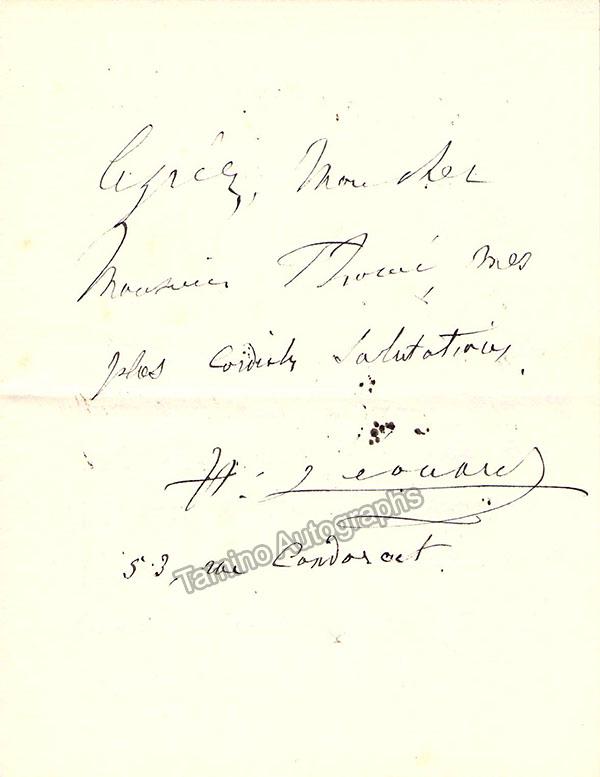 Agréez, Mon cher
Monsieur Thomé, mes
plus cordiales salutations.
H. Léonard
Tamino Autographs
53, rue Condorcet.